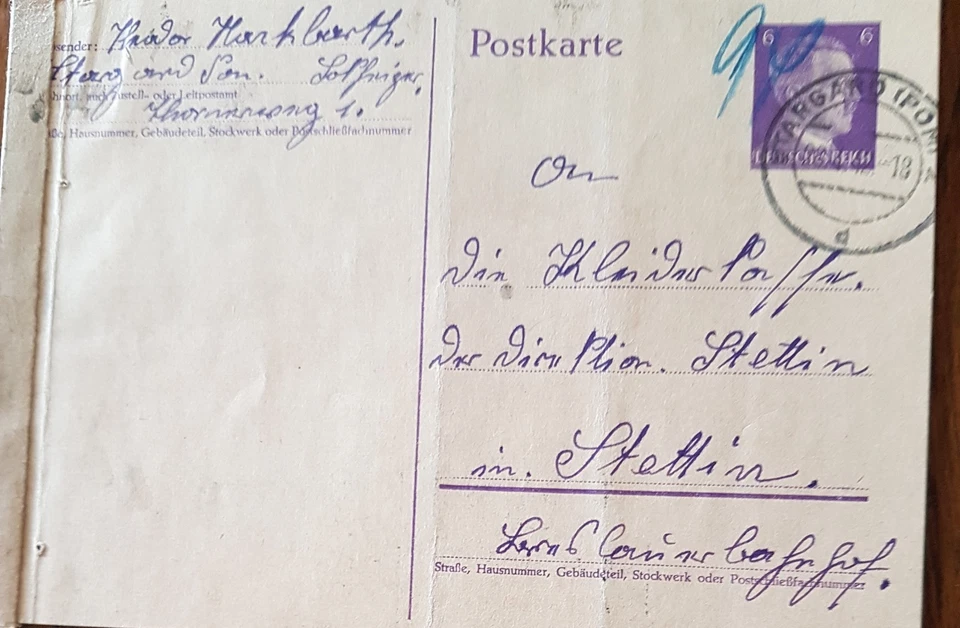 Absender: Isidor Hackbarth.
Stargard Pom. Lokheizer,
Wohnort, auch Zustell- oder Leitpostamt
Thornerweg 1.
Straße, Hausnummer, Gebäudeteil, Stockwerk oder Postschließfachnummer
Postkarte
6 6
DEUTSCHES REICH
STARGARD (POM)
-18
d
An
Die Kleiderkasse.
der Direktion. Stettin
in. Stettin.
Breslauerbahnhof.
Straße, Hausnummer, Gebäudeteil, Stockwerk oder Postschließfachnummer